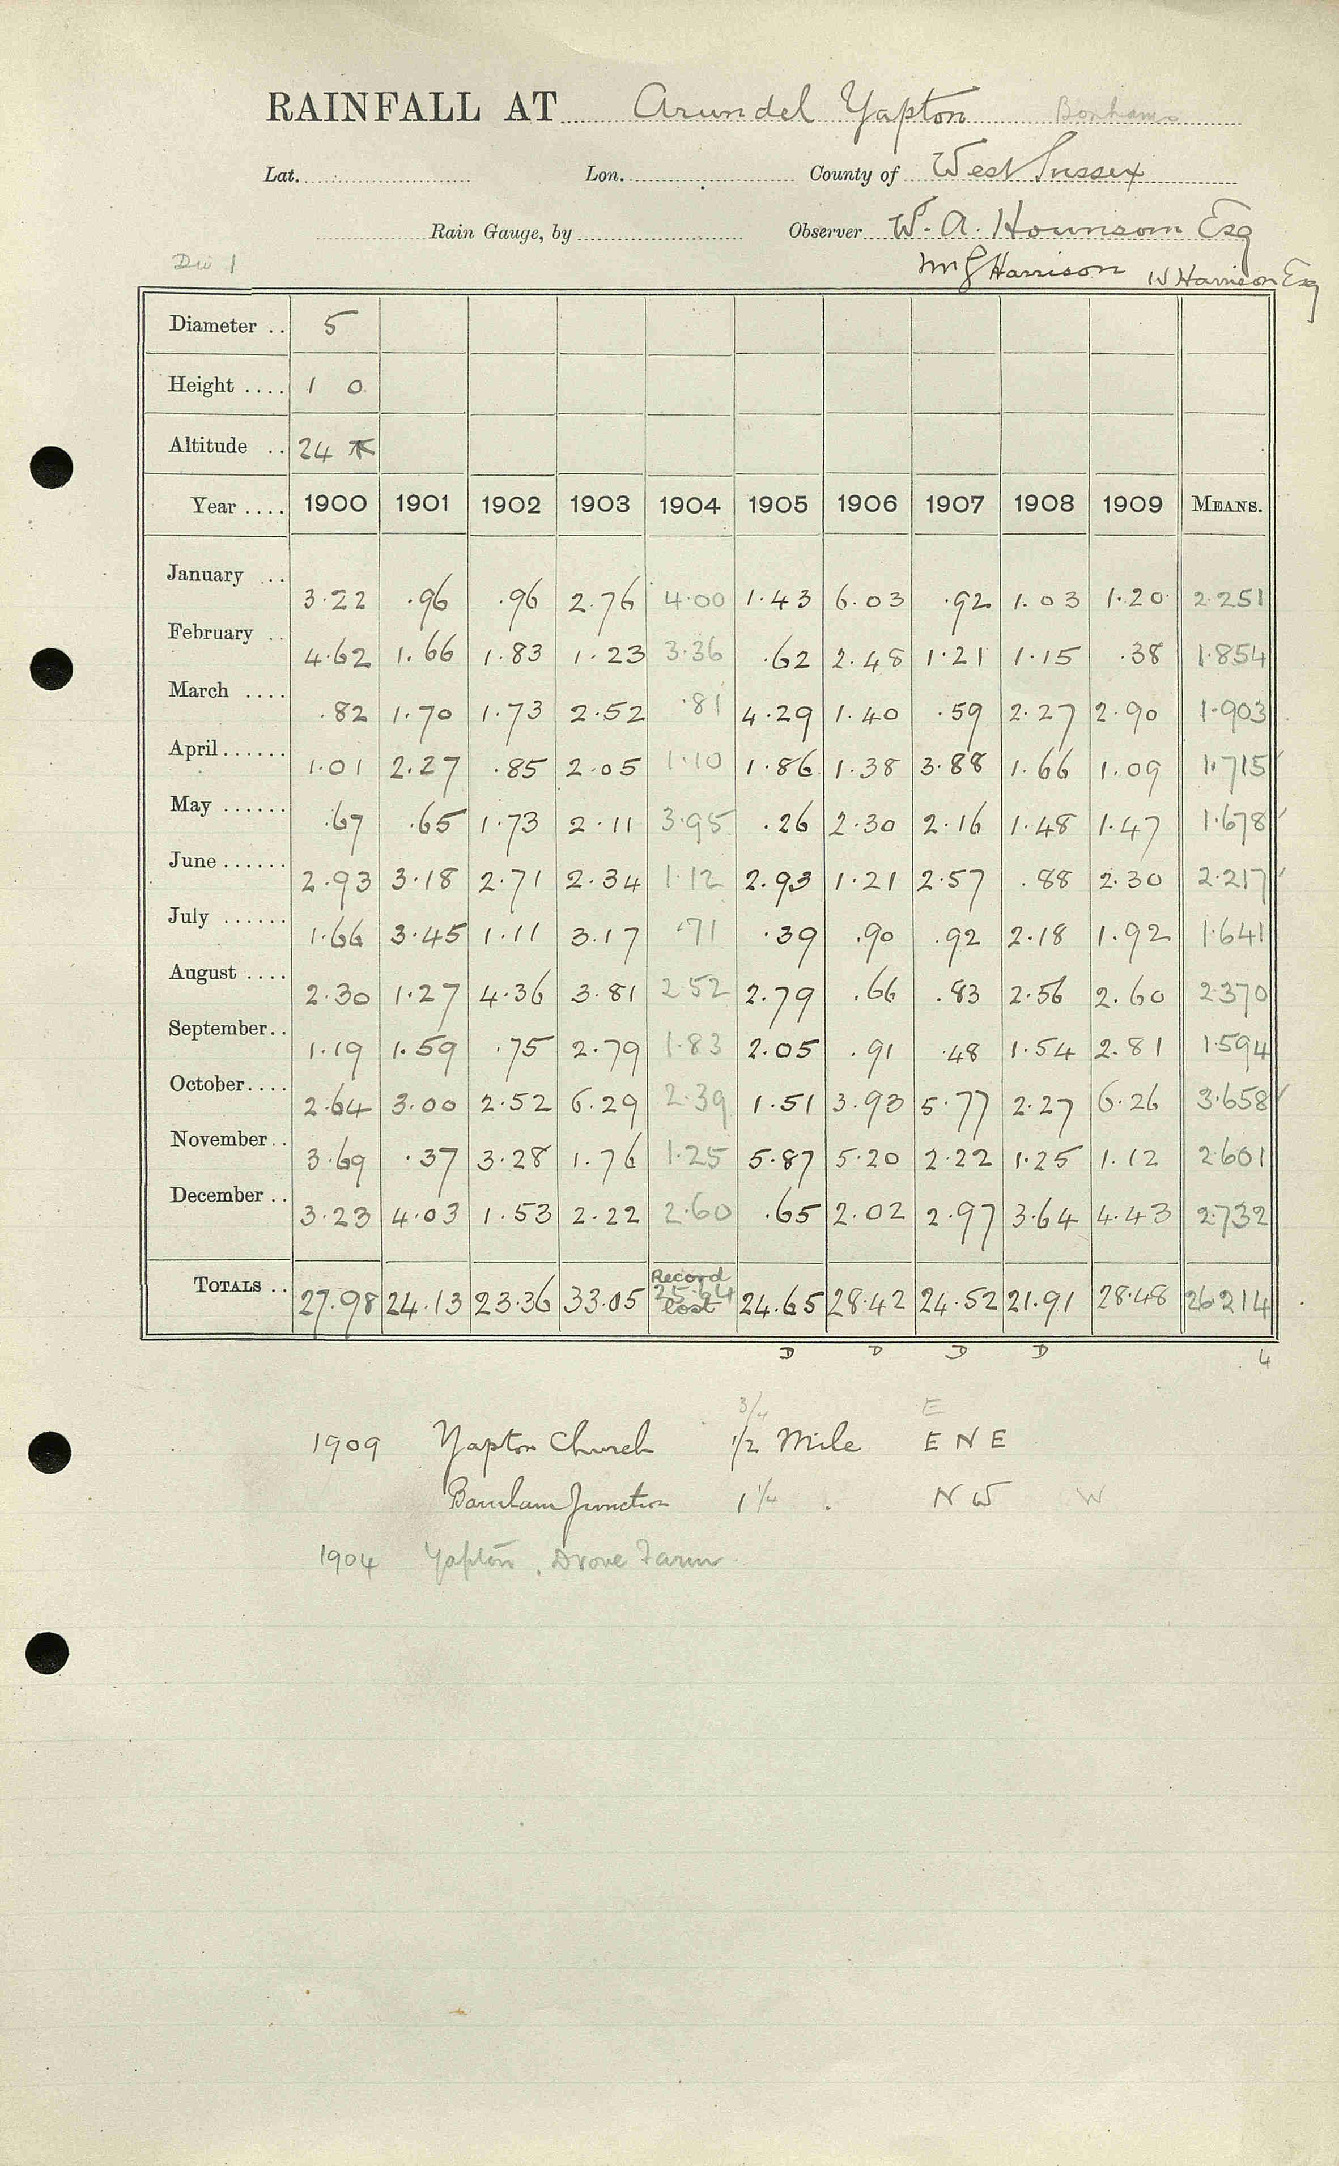 RAINFALL AT Arundel Yapton Bonhams
Lat. Lon. County of West Sussex
Rain Gauge, by Observer W. A. Hounsom Esq
Div 1
Harrison W Harrison Esq
Diameter .. 5
Height .... 1 0
Altitude .. 24
Year .... 1900 1901 1902 1903 1904 1905 1906 1907 1908 1909 MEANS.
January ... 3.22 .96 .96 2.76 4.00 1.43 6.03 .92 1.03 1.20 2.251
February .. 4.62 1.66 1.83 1.23 3.36 .62 2.48 1.21 1.15 .38 1.854
March .... .82 1.70 1.73 2.52 .81 4.29 1.40 .59 2.27 2.90 1.903
April ...... 1.01 2.27 .85 2.05 1.10 1.86 1.38 3.88 1.66 1.09 1.715
May ...... .67 .65 1.73 2.11 3.95 .26 2.30 2.16 1.48 1.47 1.678
June ...... 2.93 3.18 2.71 2.34 1.12 2.93 1.21 2.57 .88 2.30 2.217
July ...... 1.66 3.45 1.11 3.17 .71 .39 .90 .92 2.18 1.92 1.641
August .... 2.30 1.27 4.36 3.81 2.52 2.79 .66 .83 2.56 2.60 2.370
September.. 1.19 1.59 .75 2.79 1.83 2.05 .91 .48 1.54 2.81 1.594
October.... 2.64 3.00 2.52 6.29 2.39 1.51 3.93 5.77 2.27 6.26 3.658
November .. 3.69 .37 3.28 1.76 1.25 5.87 5.20 2.22 1.25 1.12 2.601
December .. 3.23 4.03 1.53 2.22 2.60 .65 2.02 2.97 3.64 4.43 2.732
Record
TOTALS .. 27.98 24.13 23.36 33.05 25.64 24.65 28.42 24.52 21.91 28.48 26.214
lost
D D D D 4
3/4 E
1909 Yapton Church 1/2 Mile E N E
Barnham Junction 1 1/4 . N W W
1904 Yapton, Drove Farm